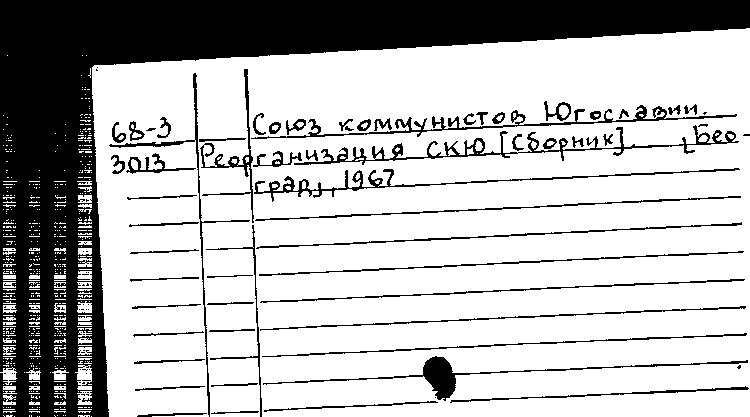 68-3 Союз коммунистов Югославии.
3013 Реорганизация СКЮ [Сборник]. [Бео-
град], 1967